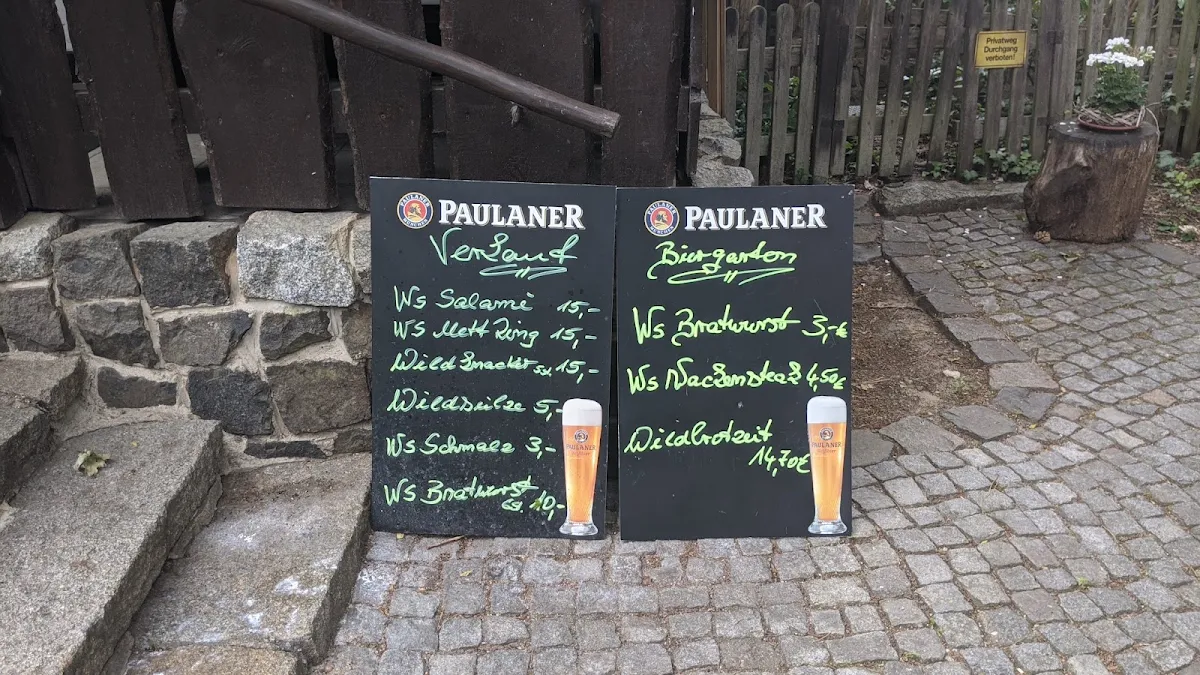 PAULANER
Verkauf
Ws Salami 15,-
Ws Mett Ring 15,-
Wild Knacker 15,-
Wildsülze 5,-
Ws Schmalz 3,-
Ws Bratwurst
10,-
PAULANER
PAULANER
Biergarten
Ws Bratwurst 3,-€
Ws Nackensteak 4,50€
Wildbrotzeit
14,70€
PAULANER
Privatweg
Durchgang
verboten!